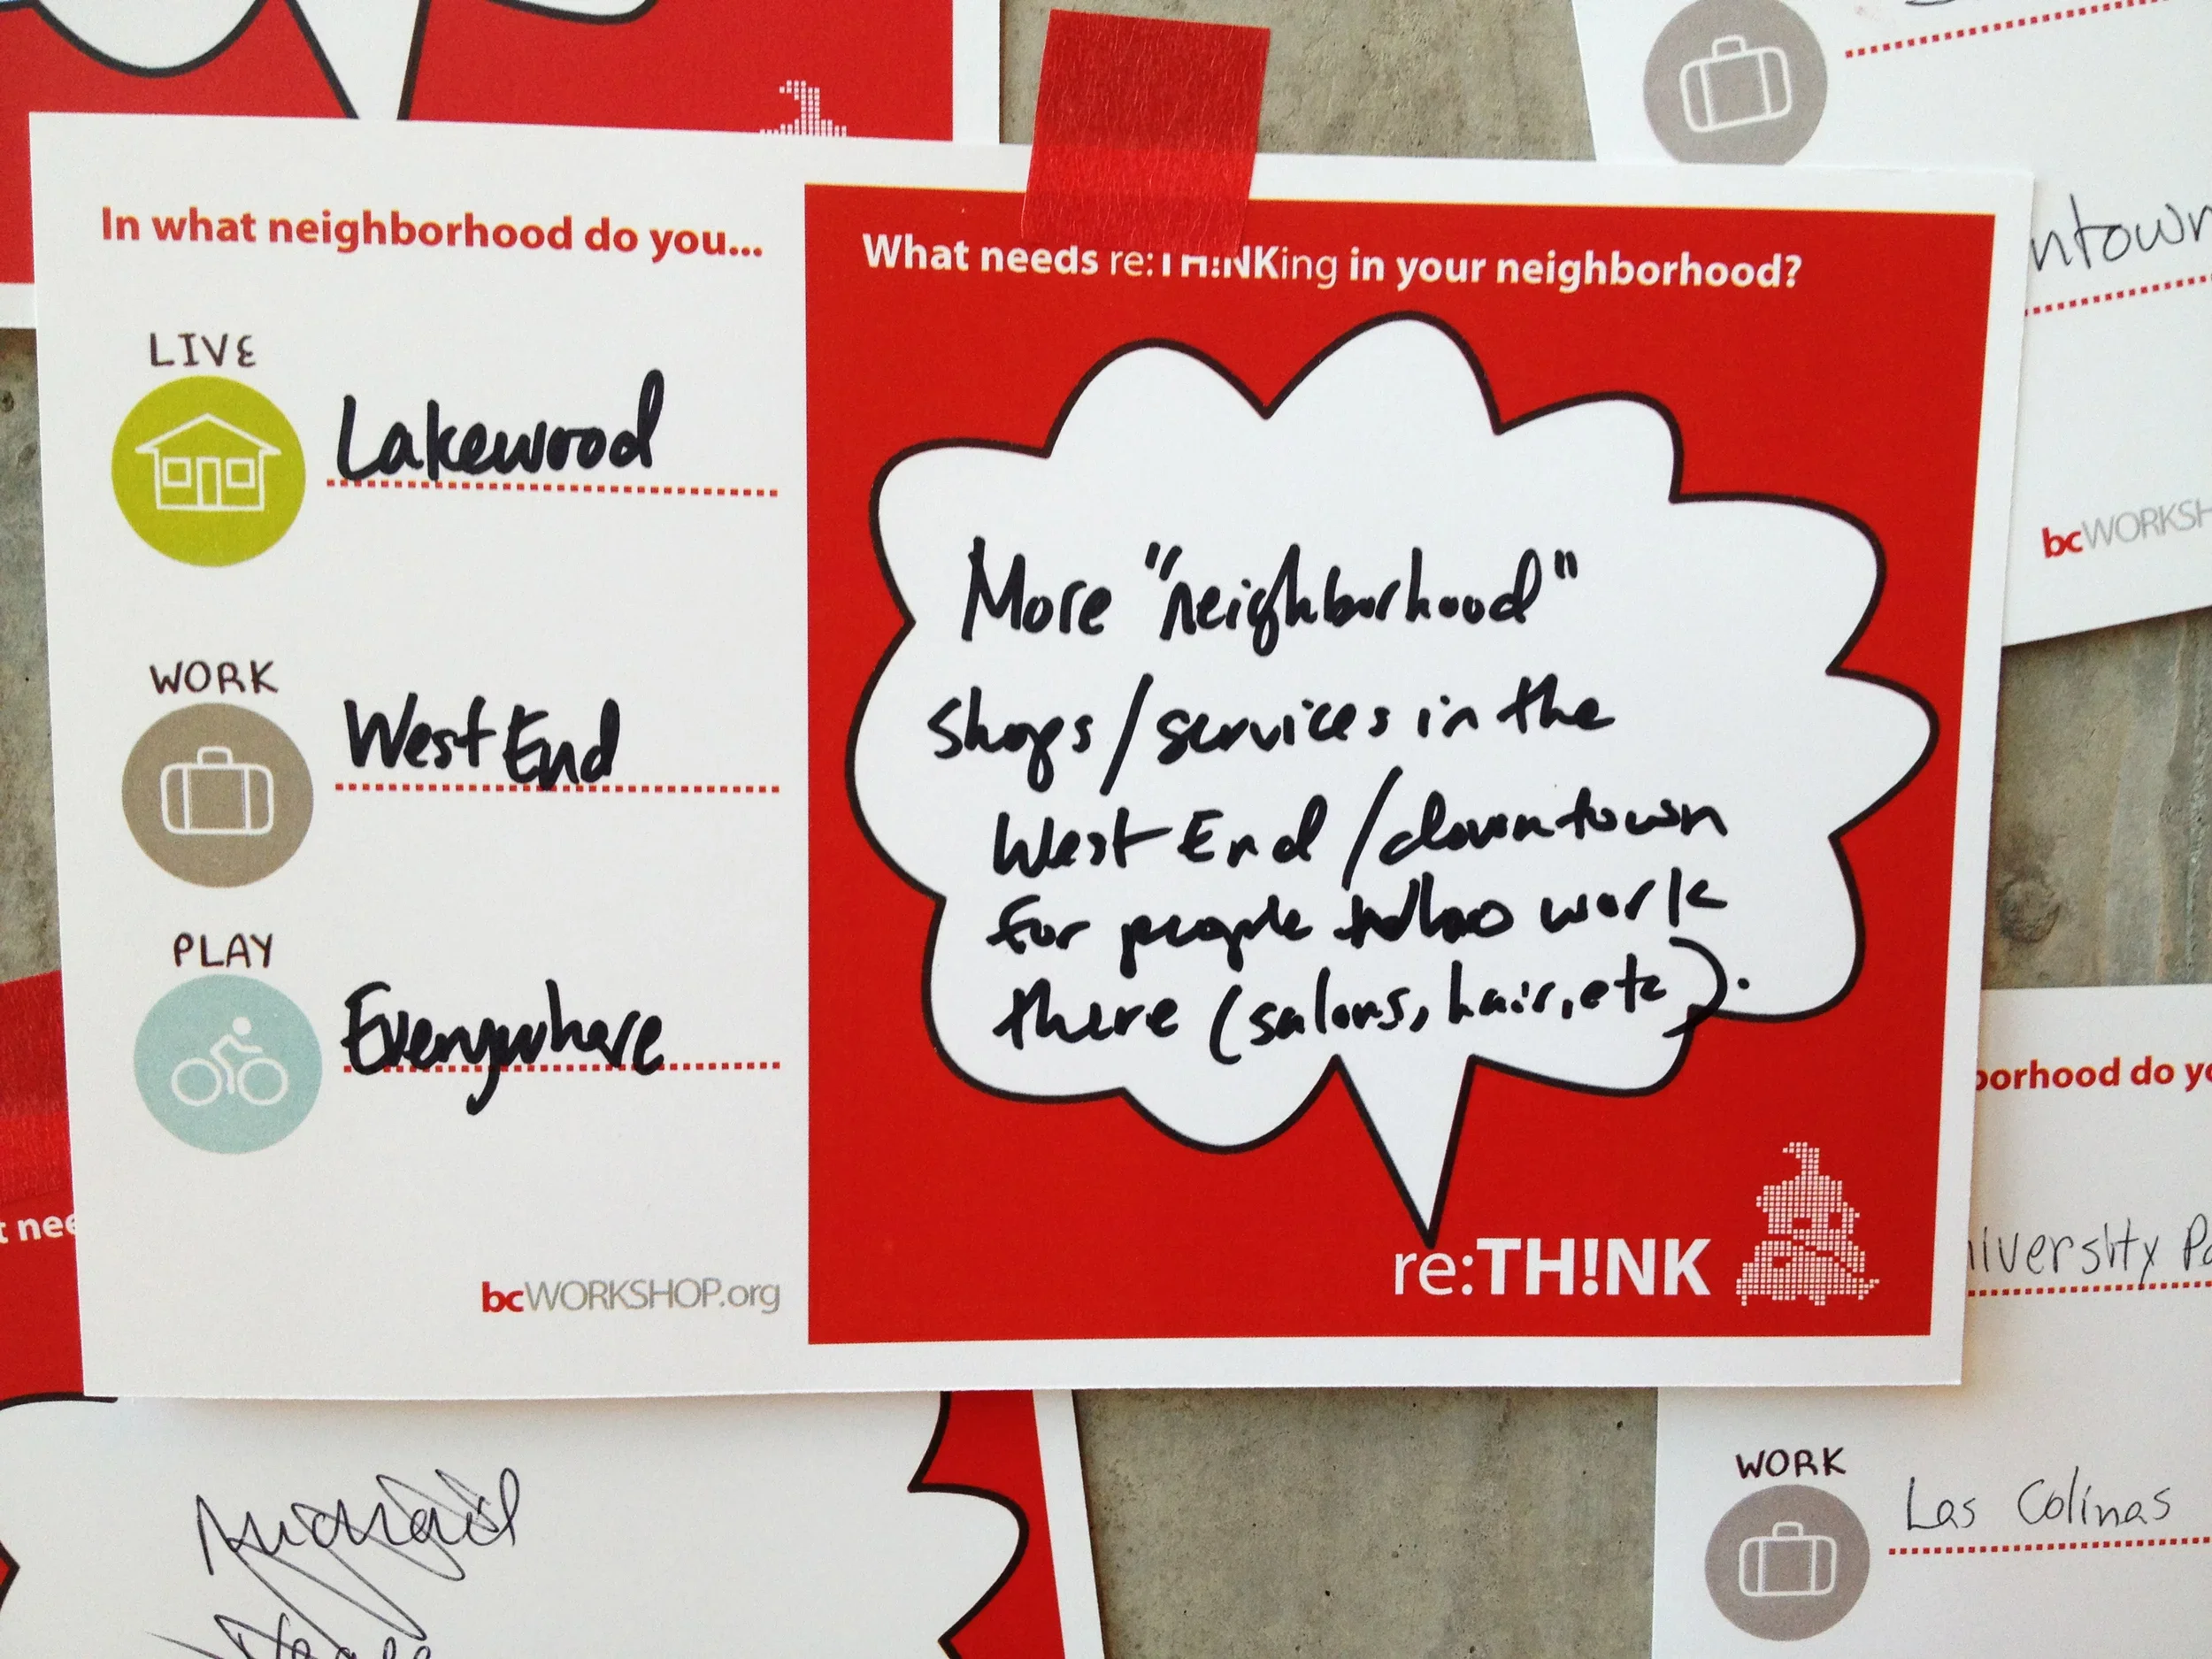 In what neighborhood do you...
LIVE
Lakewood
WORK
West End
PLAY
Everywhere
bcWORKSHOP.org
What needs re:TH!NKing in your neighborhood?
More "neighborhood"
shops/services in the
West End/downtown
for people who work
there (salons, hair, etc).
re:TH!NK
ntown
bcWORKSH
borhood do yo
niversity Pa
WORK
Las Colinas
t nee